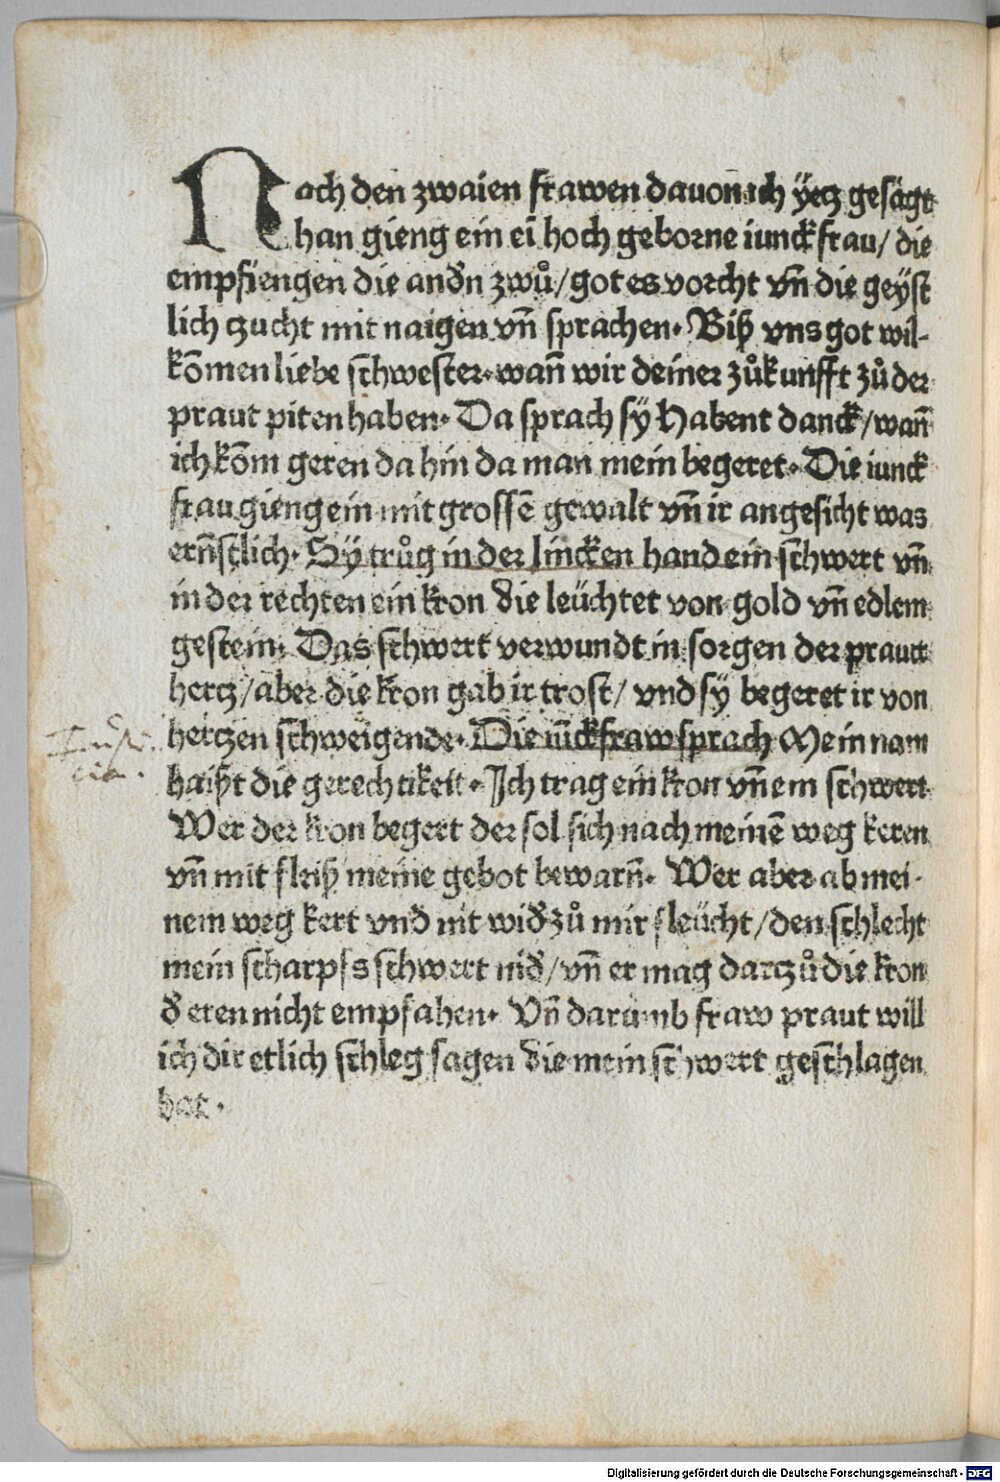 Nach den zwaien frawen davon ich ÿetz gesagt
han gieng ein ei hoch geborne iunckfrau/ die
empfiengen die andn̄ zwů/got es vorcht vn̄ die geÿst
lich zucht mit naigen vn̄ sprachen. Biß vns got wil-
kōmen liebe schwester. wan̄ wir deiner zůkunfft zů der
praut piten haben. Da sprach sÿ Habent danck/wan̄
ich kōm geren da hin da man mein begeret. Die iunck
frau gieng ein mit grossē gewalt vn̄ ir angesicht was
ern̄stlich. Sÿ trůg in der lincken hand ein schwert vn̄
in der rechten ein kron die leüchtet von gold vn̄ edlem
gestein. Das schwert verwundt in sorgen der praut
hertz/aber die kron gab ir trost/ vnd sÿ begeret ir von
hertzen schweigende. Die iūckfraw sprach Mein nam
Iusti
cia.
haißt die gerechtikeit. Ich trag ein kron vn̄ ein schwert
Wer der kron begert der sol sich nach meinē weg keren
vn̄ mit fleiß meine gebot bewarn̄. Wer aber ab mei-
nem weg kert vnd nit wid̄ zů mir fleücht/den schlecht
mein scharpfs schwert nid̄/vn̄ er mag dartzů die kron
d̄ eren nicht empfahen. Vn̄ darumb fraw praut will
ich dir etlich schleg sagen die mein schwert geschlagen
hat.
Digitalisierung gefördert durch die Deutsche Forschungsgemeinschaft - DFG